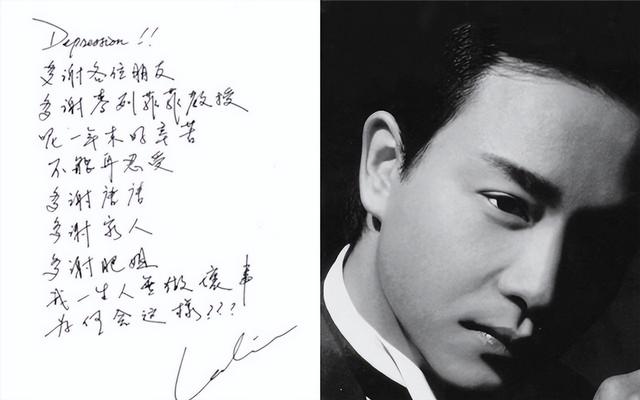 Depression!!
多谢各位朋友
多谢麦列菲菲教授
呢一年来好辛苦
不能再忍受
多谢唐唐
多谢家人
多谢肥姐
我一生人無做壞事
为何会这樣???